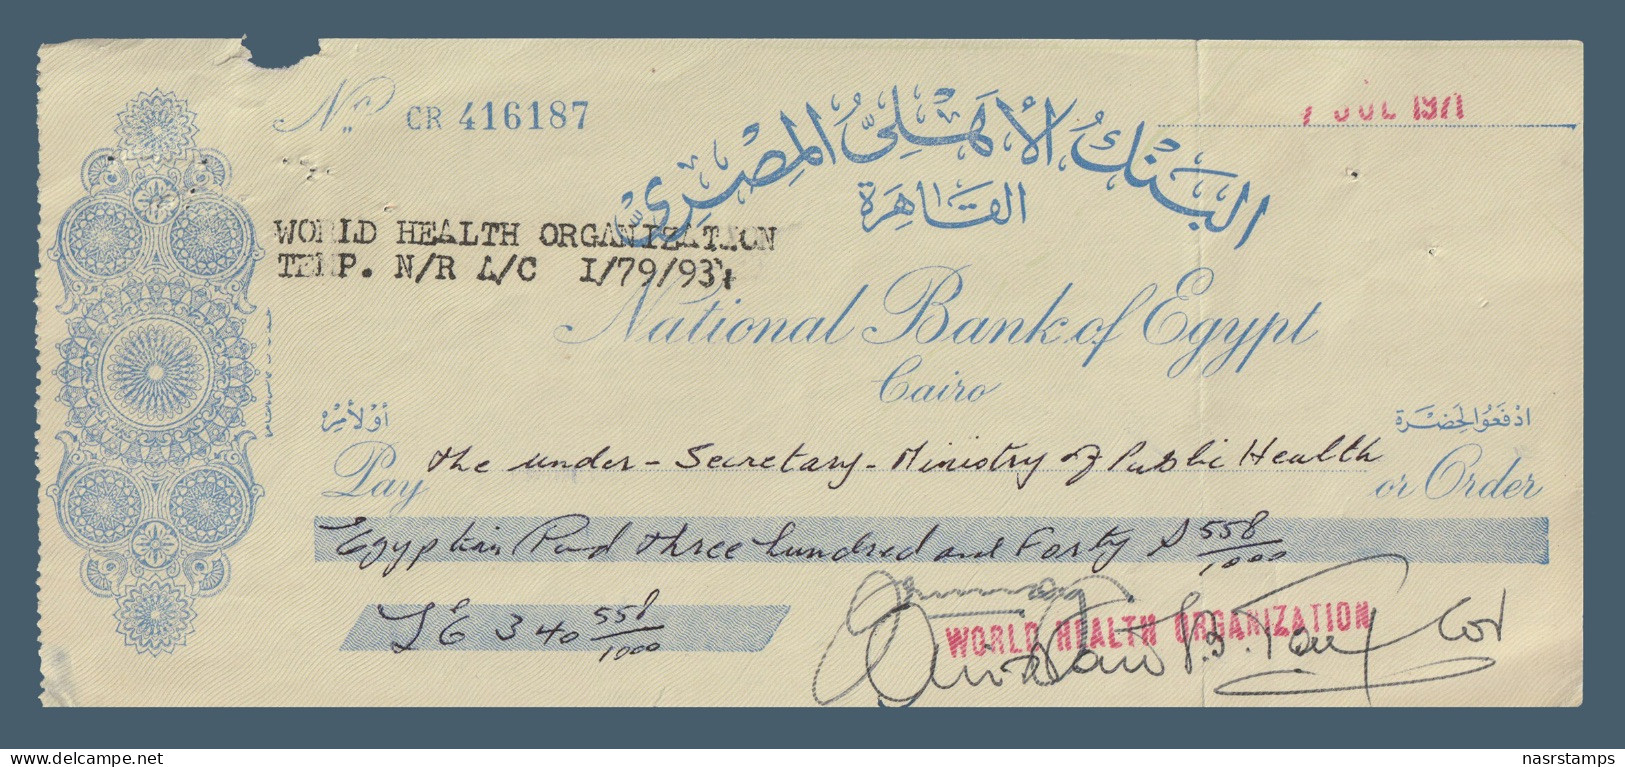 No CR 416187
7 JUL 1971
البنك الأهلي المصري
القاهرة
WORLD HEALTH ORGANIZATION
TEMP. N/R A/C I/79/93
National Bank of Egypt
Cairo
ادفعوا لحضرة
أو لأمره
Pay the under-Secretary-Ministry of Public Health or Order
Egyptian Pound three hundred and Forty & 558/1000
LE 340 558/1000
WORLD HEALTH ORGANIZATION
www.delcampe.net
nasrstamps